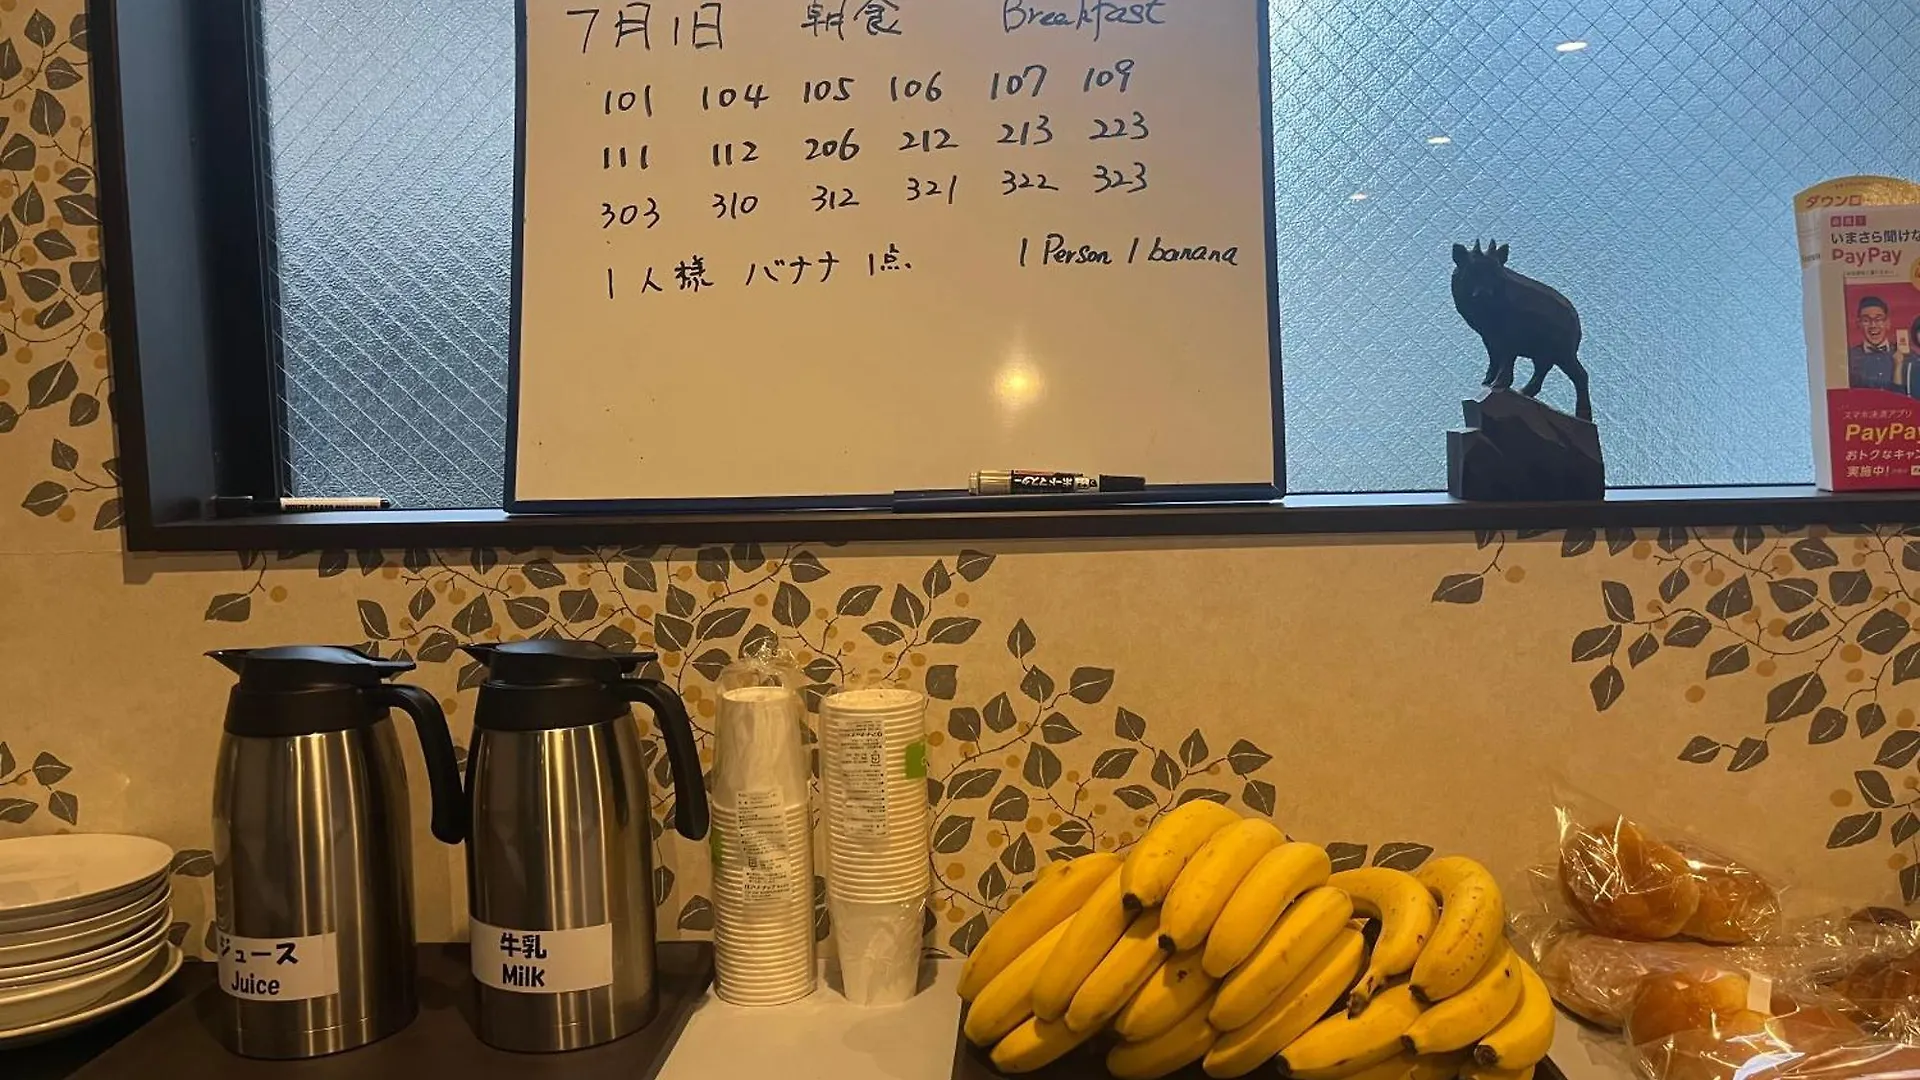 7月1日 朝食 Breakfast
101 104 105 106 107 109
111 112 206 212 213 223
303 310 312 321 322 323
1人様 バナナ 1点. 1 Person 1 banana
ダウンロ
いまさら聞けな
PayPay
スマホ決済アプリ
PayPay
おトクなキャン
実施中!
ジュース
Juice
牛乳
Milk